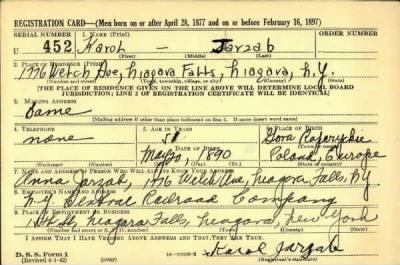 REGISTRATION CARD—(Men born on or after April 28, 1877 and on or before February 16, 1897)
SERIAL NUMBER 1. NAME (Print) ORDER NUMBER
U 452 Karol - Jarzab
(First) (Middle) (Last)
2. PLACE OF RESIDENCE (Print)
1776 Welch Ave, Niagara Falls, Niagara, N.Y.
(Number and street) (Town, township, village, or city) (County) (State)
[THE PLACE OF RESIDENCE GIVEN ON THE LINE ABOVE WILL DETERMINE LOCAL BOARD
JURISDICTION; LINE 2 OF REGISTRATION CERTIFICATE WILL BE IDENTICAL]
3. MAILING ADDRESS
Same
[Mailing address if other than place indicated on line 2. If same insert word same]
4. TELEPHONE 5. AGE IN YEARS 6. PLACE OF BIRTH
none 51
DATE OF BIRTH
1890 Poland, Europe
(Exchange) (Number) (Mo.) (Day) (Yr.) (State or country)
7. NAME AND ADDRESS OF PERSON WHO WILL ALWAYS KNOW YOUR ADDRESS
Anna Jarzab, 1776 Welch Ave, Niagara Falls, NY
8. EMPLOYER'S NAME AND ADDRESS
N.Y. Central Railroad Company
9. PLACE OF EMPLOYMENT OR BUSINESS
Niagara Falls, Niagara, New York
(Number and street or R. F. D. number) (Town) (County) (State)
I AFFIRM THAT I HAVE VERIFIED ABOVE ANSWERS AND THAT THEY ARE TRUE.
D. S. S. Form 1 Karol Jarzab
(Revised 4-1-42) (over)